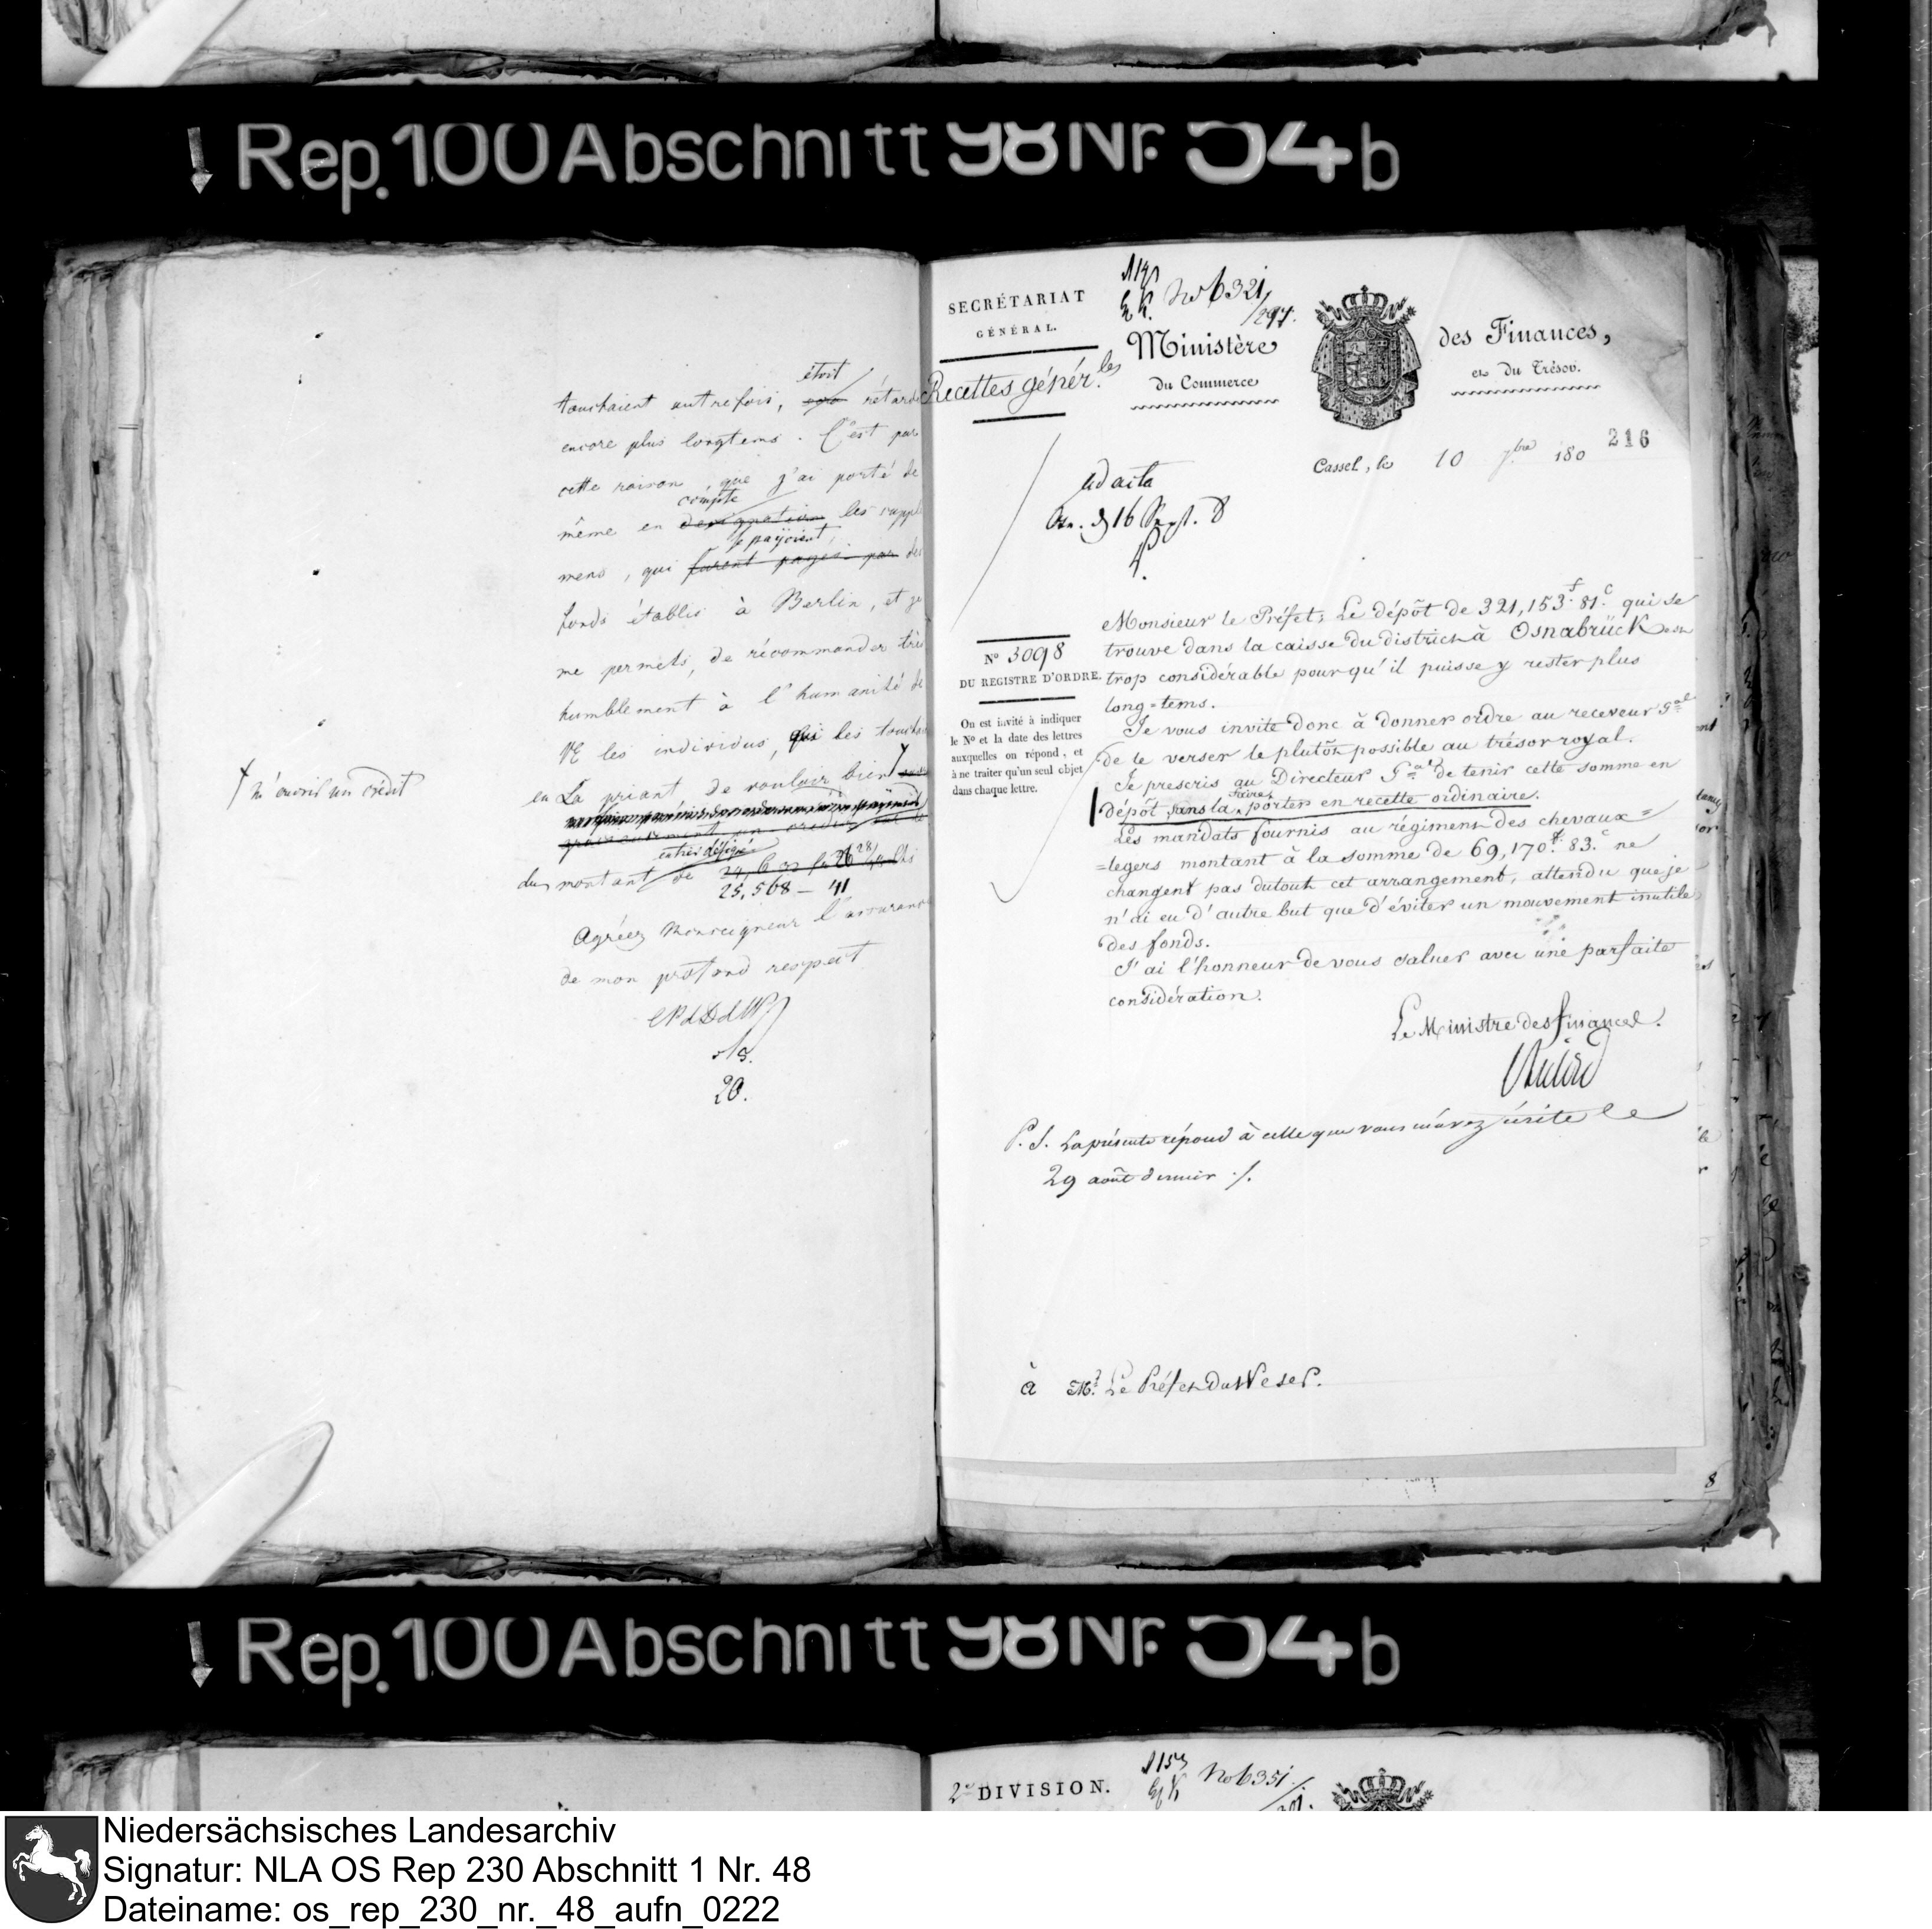 Rep. 100 Abschnitt 98 Nr. 54b
étoit
touchaient autrefois, rétardé
encore plus longtems. C'est par
cette raison, que j'ai porté de
compte
même en designation les suppl
se payoient,
mens, qui furent payés par des
fonds établis à Berlin, et je
me permets, de récommander très
humblement à l'humanité de
VE les individus, qui les touchai
en La priant de vouloir bien
† m'ouvrir un crédit
entier désigné
du montant de
25,568 – 41
Agréez Monseigneur l'assurance
de mon profond respect
LPdDdW
20.
SECRÉTARIAT
GÉNÉRAL.
No 6321/
297.
Ministère des Finances,
du Commerce et du Trésor.
Recettes génér.les
216
Cassel, le 10 7bre 180
ad acta
Osn. d 16 Sept. 8
Monsieur le Préfet; Le dépôt de 321,153f. 81c. qui se
trouve dans la caisse du district à Osnabrück est
trop considérable pour qu'il puisse y rester plus
long=tems.
Nº 3098
DU REGISTRE D'ORDRE.
On est invité à indiquer
le Nº et la date des lettres
auxquelles on répond, et
à ne traiter qu'un seul objet
dans chaque lettre.
Je vous invite donc à donner ordre au receveur Gal
de le verser le plutôt possible au trésor royal.
Je prescris au Directeur Gal de tenir cette somme en
faire
dépôt sans la porter en recette ordinaire.
Les mandats fournis au régiment des chevaux=
=legers montant à la somme de 69,170f. 83c. ne
changent pas dutout cet arrangement, attendu que je
n'ai eu d'autre but que d'éviter un mouvement inutile
des fonds.
J'ai l'honneur de vous saluer avec une parfaite
considération.
Le Ministre des finances.
P. S. La présente répond à celle que vous m'avez écrite le
29 août dernier ./.
à Mr. Le Préfet du Weser.
8
Rep. 100 Abschnitt 98 Nr. 54b
2e DIVISION.
1153
No 6351/
Niedersächsisches Landesarchiv
Signatur: NLA OS Rep 230 Abschnitt 1 Nr. 48
Dateiname: os_rep_230_nr._48_aufn_0222